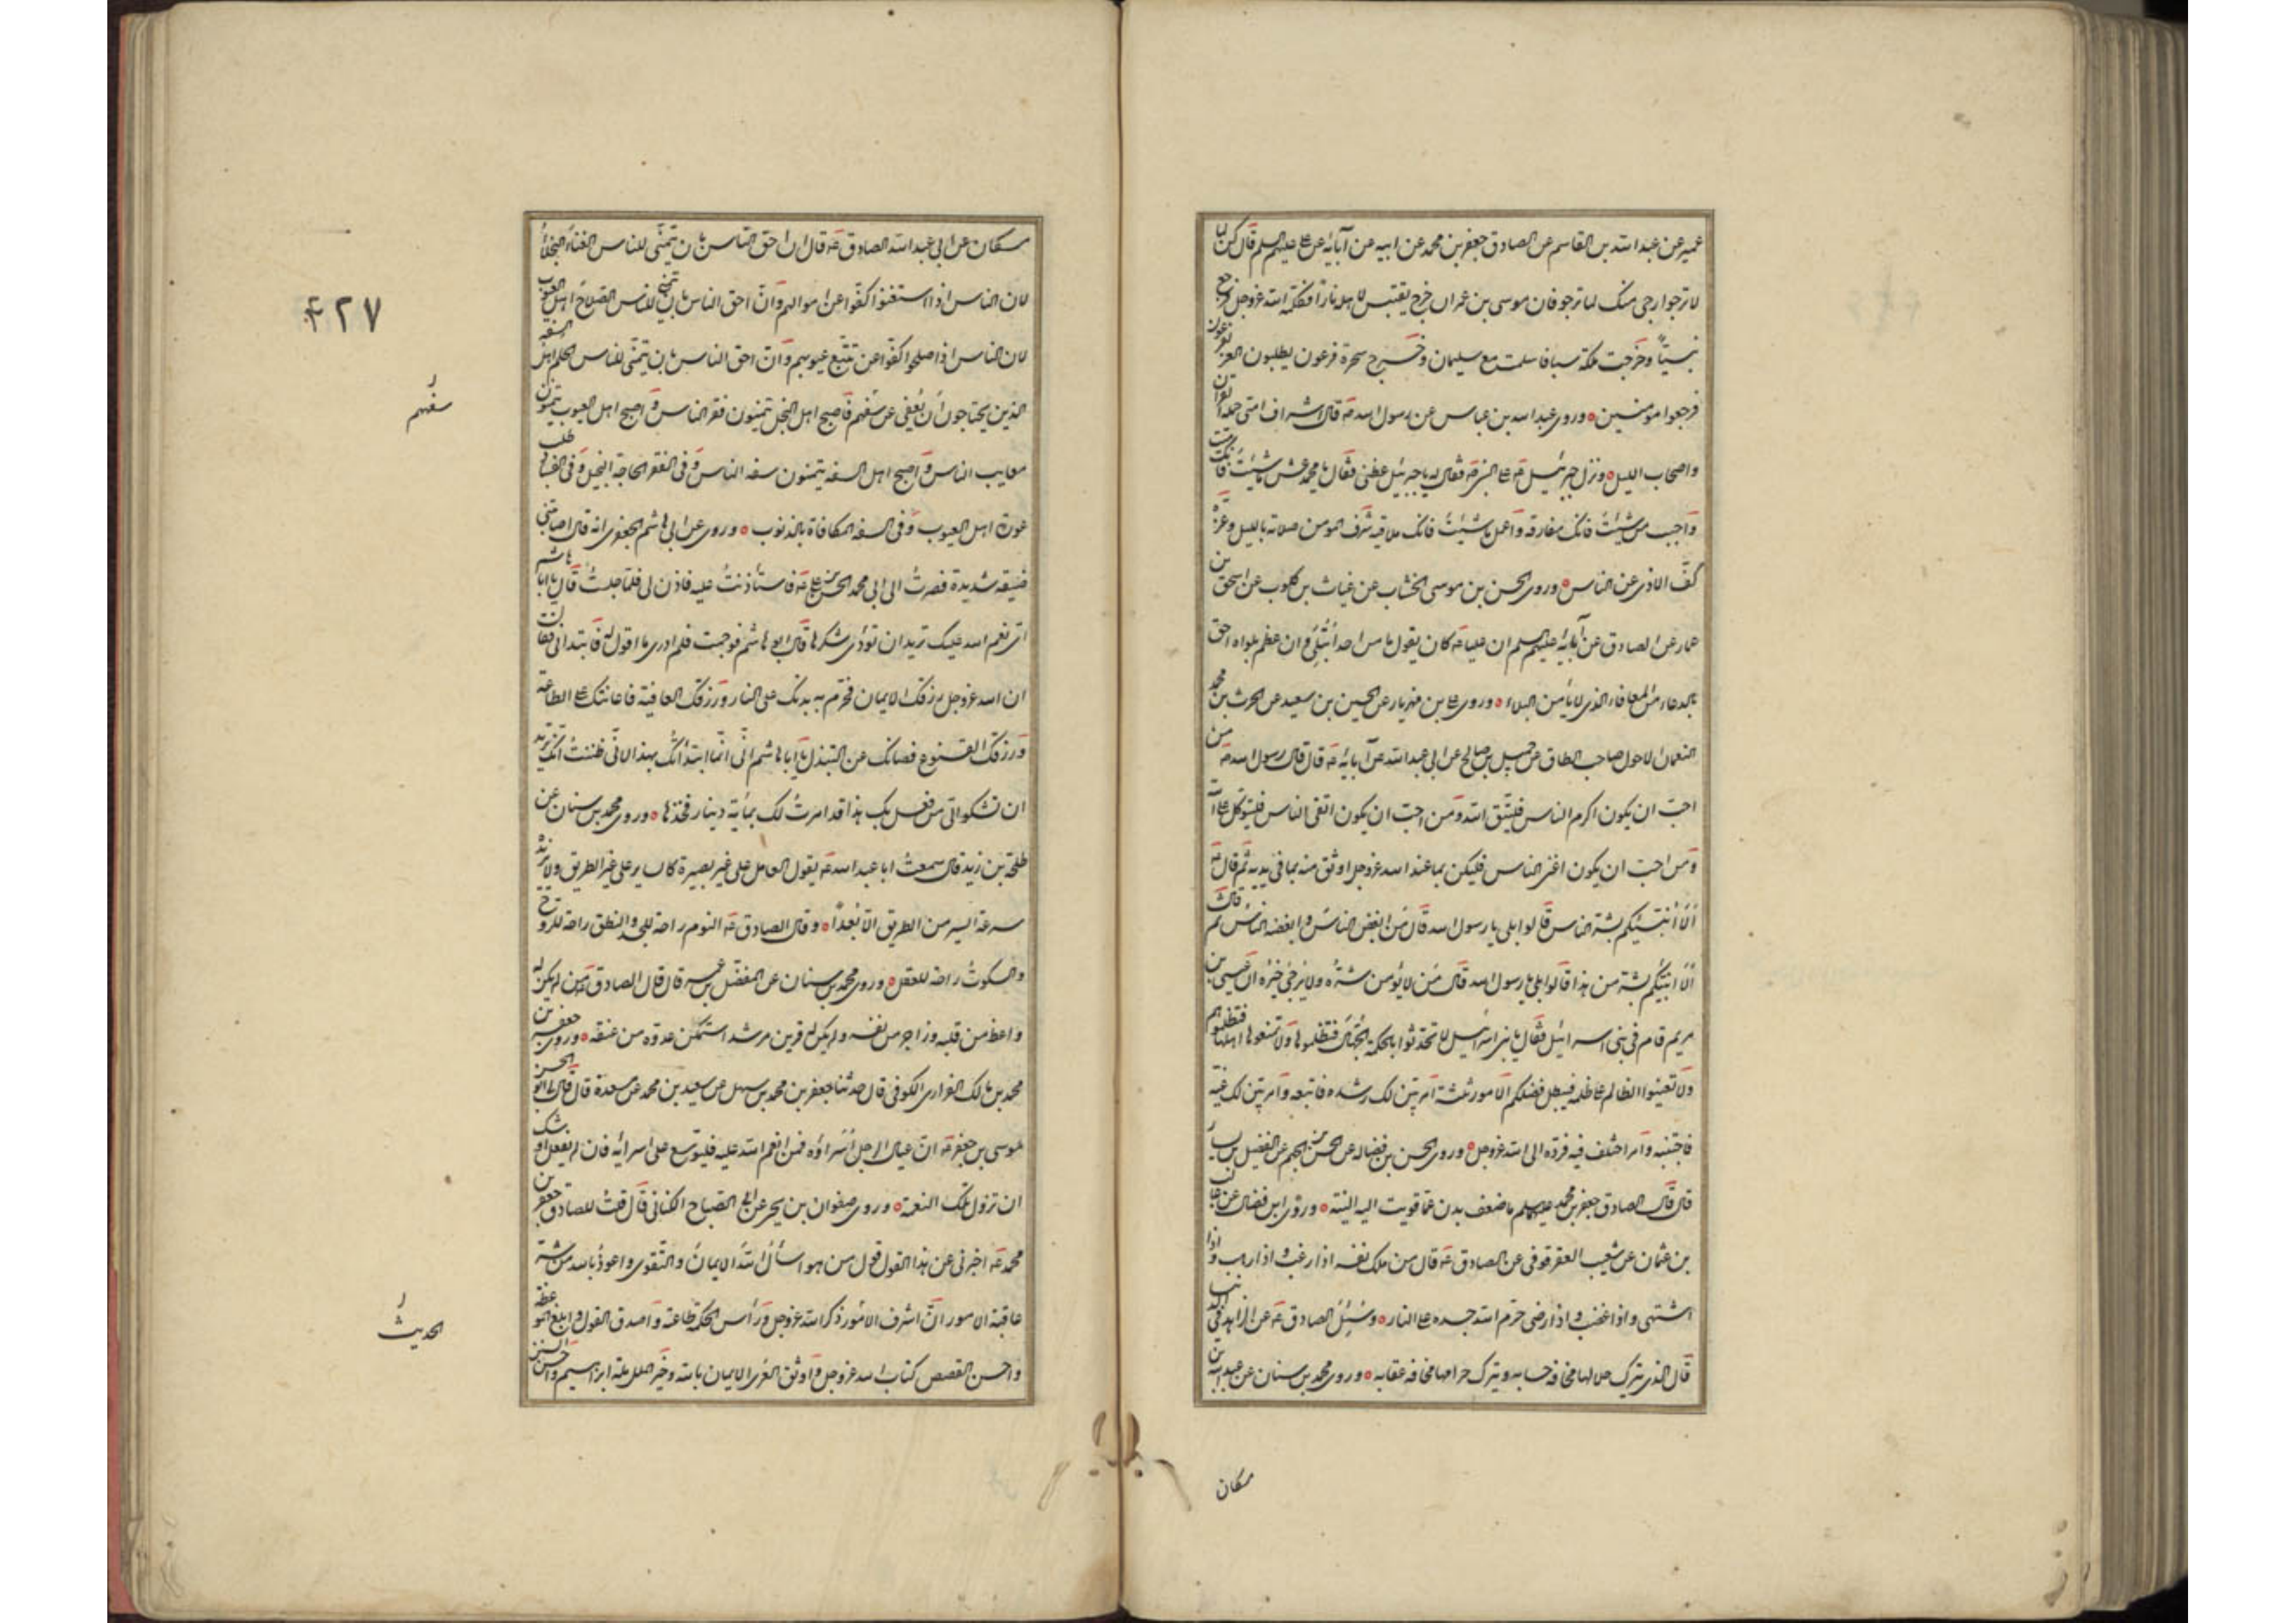 عمير عن عبد الله بن القاسم عن الصادق جعفر بن محمد عن ابيه عن آبائه عن علي عليهم السلم قال كن لما
لا ترجوا ارجى منك لما ترجو فان موسى بن عمران خرج يقتبس لاهله نارا فكلمه الله عز وجل فرجع
نبيا وخرجت ملكة سبا فاسلمت مع سليمان وخرج سحرة فرعون يطلبون العز لفرعون
فرجعوا مومنين وروى عبد الله بن عباس عن رسول الله ص قال اشراف امتي حملة القران
واصحاب الليل ونزل جبرئيل ع على النبي ص فقال له يا جبرئيل عظني فقال يا محمد عش ما شئت فانك ميت
واحبب من شئت فانك مفارقه واعمل ما شئت فانك ملاقيه شرف المومن صلاته بالليل وعزه
كف الاذى عن الناس وروى الحسن بن موسى الخشاب عن غياث بن كلوب عن اسحق بن
عمار عن الصادق عن آبائه عليهم السلم ان عليا ع كان يقول ما من احد ابتلى وان عظم بلواه احق
بالدعاء من المعافاء الذي لا يأمن البلاء وروى علي بن مهزيار عن الحسين بن سعيد عن الحرث بن محمد
النعمان الاحول صاحب الطاق عن جميل بن صالح عن ابي عبد الله عن آبائه ع قال قال رسول الله ص من
احب ان يكون اكرم الناس فليتق الله ومن احب ان يكون اتقى الناس فليتوكل على الله
ومن احب ان يكون اغنى الناس فليكن بما عند الله عز وجل اوثق منه بما في يديه ثم قال ع
ألا أنبئكم بشر الناس قالوا بلى يا رسول الله قال من ابغض الناس وابغضه الناس ثم قال
ألا انبئكم بشر من هذا قالوا بلى يا رسول الله قال من لا يؤمن شره ولا يرجى خيره ان عيسى بن
مريم قام في بني اسرائيل فقال يا بني اسرائيل لا تحدثوا بالحكمة الجهال فتظلموها ولا تمنعوها اهلها فتظلموهم
ولا تعينوا الظالم على ظلمه فيبطل فضلكم الامور ثلثة امر تبين لك رشده فاتبعه وامر تبين لك غيه
فاجتنبه وامر اختلف فيه فرده الى الله عز وجل وروى الحسن بن فضاله عن الحسن بن الجهم عن الفضيل بن يسار
قال قال الصادق جعفر بن محمد عليهما السلم ما ضعف بدن عما قويت اليه النية وروى ابن فضال عن غالب
بن عثمان عن شعيب العقرقوفي عن الصادق ع قال من ملك نفسه اذا رغب واذا رهب واذا
اشتهى واذا غضب واذا رضى حرم الله جسده على النار وسئل الصادق ع عن الزاهد في الدنيا
قال الذي يترك حلالها مخافة حسابه ويترك حرامها مخافة عقابه وروى محمد بن سنان عن عبد الله بن
مسكان
مسكان عن ابي عبد الله الصادق ع قال ان احق الناس بان يتمنى للناس الغناء البخلاء
لان الناس اذا استغنوا كفوا عن اموالهم وان احق الناس بان يتمنى للناس الصلاح اهل العيوب
لان الناس اذا صلحوا كفوا عن تتبع عيوبهم وان احق الناس بان يتمنى للناس الحلم اهل السفه
الذين يحتاجون ان يعفى عن سفههم فاصبح اهل البخل يتمنون فقر الناس واصبح اهل العيوب يتمنون
معايب الناس واصبح اهل السفه يتمنون سفه الناس وفي الفقر الحاجة الى البخيل وفي الفساد طلب
عورة اهل العيوب وفي السفه المكافاة بالذنوب وروى عن ابي هاشم الجعفري انه قال اصابتني
ضيقة شديدة فصرت الى ابي محمد الحسن بن علي ع فاستأذنت عليه فاذن لي فلما جلست قال يا ابا هاشم
اي نعم الله عليك تريد ان تؤدي شكرها قال ابو هاشم فوجمت فلم ادر ما اقول له فابتداني فقال
ان الله عز وجل رزقك الايمان فحرم به بدنك على النار ورزقك العافية فاعانتك على الطاعة
ورزقك القنوع فصانك عن التبذل يا ابا هاشم اني انما ابتدأتك بهذا لاني ظننت انك تريد
ان تشكو الي من فعل بك هذا قد امرت لك بمائة دينار فخذها وروى محمد بن سنان عن
طلحة بن زيد قال سمعت ابا عبد الله ع يقول العامل على غير بصيرة كالساير على غير الطريق ولا يزيده
سرعة السير من الطريق الا بعدا وقال الصادق ع النوم راحة للجسد والنطق راحة للروح
والسكوت راحة للعقل وروى محمد بن سنان عن المفضل بن عمر قال قال الصادق ع من لم يكن له
واعظ من قلبه وزاجر من نفسه ولم يكن له قرين مرشد استمكن عدوه من عنقه وروى جعفر بن
محمد بن مالك الفزاري الكوفي قال حدثنا جعفر بن محمد بن سهل عن سعيد بن محمد عن مسعدة قال قال لي ابو الحسن
موسى بن جعفر ع ان عيال الرجل أسراؤه فمن انعم الله عليه فليوسع على اسرائه فان لم يفعل اوشك
ان تزول تلك النعمة وروى صفوان بن يحيى عن ابي الصباح الكناني قال قلت للصادق جعفر بن
محمد ع اخبرني عن هذا القول قول من هو اسأل الله الايمان والتقوى واعوذ بالله من شر
عاقبة الامور ان اشرف الامور ذكر الله عز وجل ورأس الحكمة طاعته واصدق القول وابلغ الموعظة
واحسن القصص كتاب الله عز وجل واوثق العرى الايمان بالله وخير الملل ملة ابراهيم واحسن السنن
۴۲۷
سفههم
الحديث